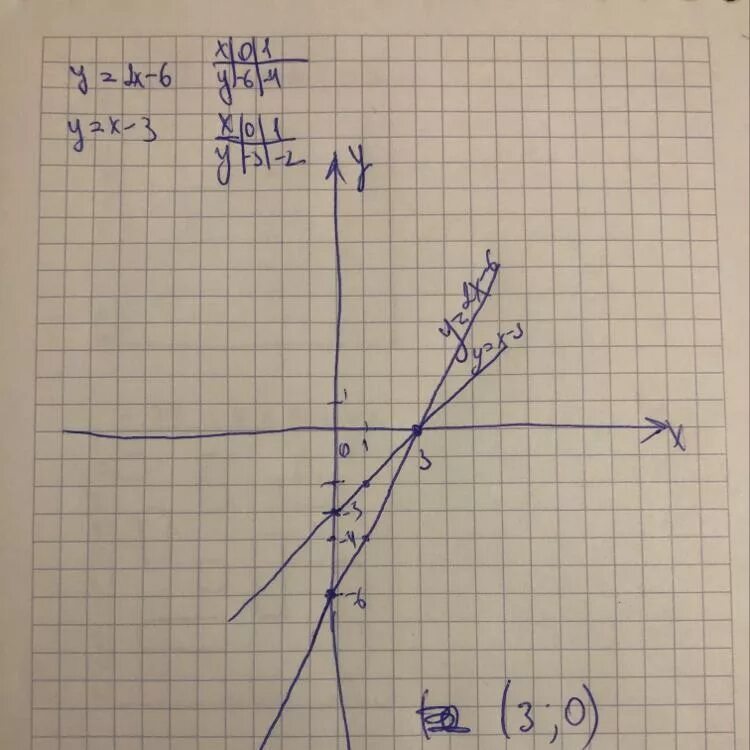 x 0 1
y = 2x-6 y -6 -4
y=x-3 x 0 1
y -3 -2
y
y=2x-6
y=x-3
1
0 1 3 x
-3
-4
-6
(3;0)